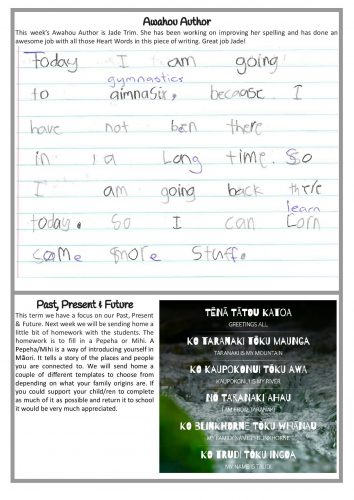 Awahou Author
This week's Awahou Author is Jade Trim. She has been working on improving her spelling and has done an
awesome job with all those Heart Words in this piece of writing. Great job Jade!
Today I am going
gymnastics
to gimnastix, because I
have not ben there
in a Long time. So
I am going back there
learn
today. So I can Lorn
some more Stuff.
Past, Present & Future
This term we have a focus on our Past, Present
& Future. Next week we will be sending home a
little bit of homework with the students. The
homework is to fill in a Pepeha or Mihi. A
Pepeha/Mihi is a way of introducing yourself in
Māori. It tells a story of the places and people
you are connected to. We will send home a
couple of different templates to choose from
depending on what your family origins are. If
you could support your child/ren to complete
as much of it as possible and return it to school
it would be very much appreciated.
TĒNĀ TĀTOU KATOA
GREETINGS ALL
KO TARANAKI TŌKU MAUNGA
TARANAKI IS MY MOUNTAIN
KO KAUPOKONUI TŌKU AWA
KAUPOKONUI IS MY RIVER
NŌ TARANAKI AHAU
I AM FROM TARANAKI
KO BLINKHORNE TŌKU WHĀNAU
MY FAMILY NAME IS BLINKHORNE
KO TRUDI TŌKU INGOA
MY NAME IS TRUDI